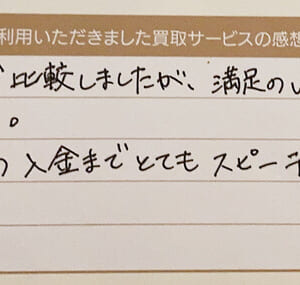 利用いただきました買取サービスの感想
比較しましたが、満足のい
。
入金までとてもスピー